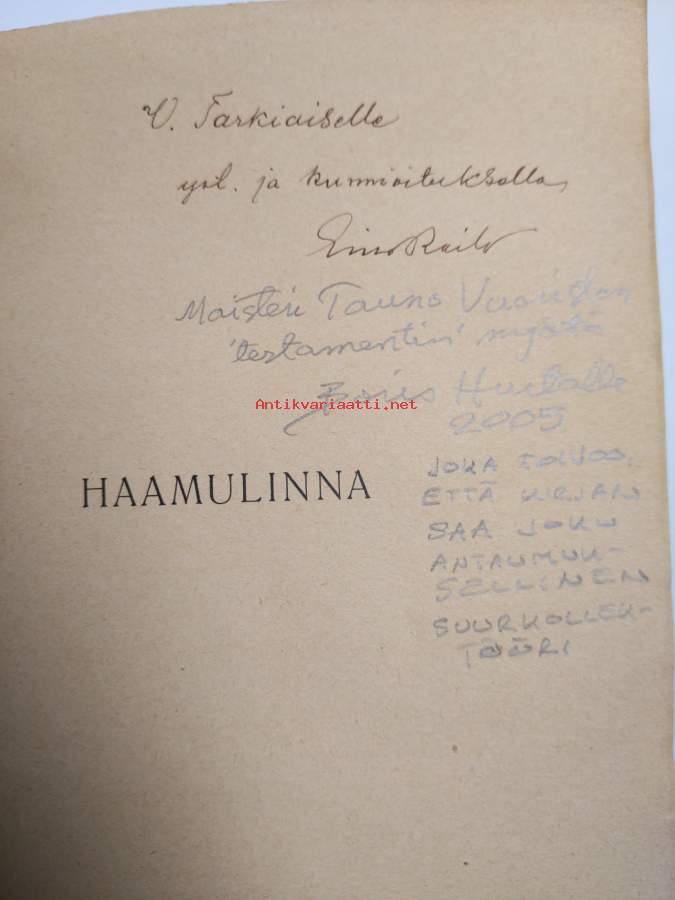 V. Tarkiaiselle
yst. ja kunnioituksella
Eino Railo
Maisteri Tauno Vuoriston
'testamentin' myötä
Boris Hurtalle
Antikvariaatti.net
2005
HAAMULINNA
JOKA TOIVOO,
ETTÄ KIRJAN
SAA JOKU
ANTAUMUK-
SELLINEN
SUURKOLLEK-
TÖÖRI